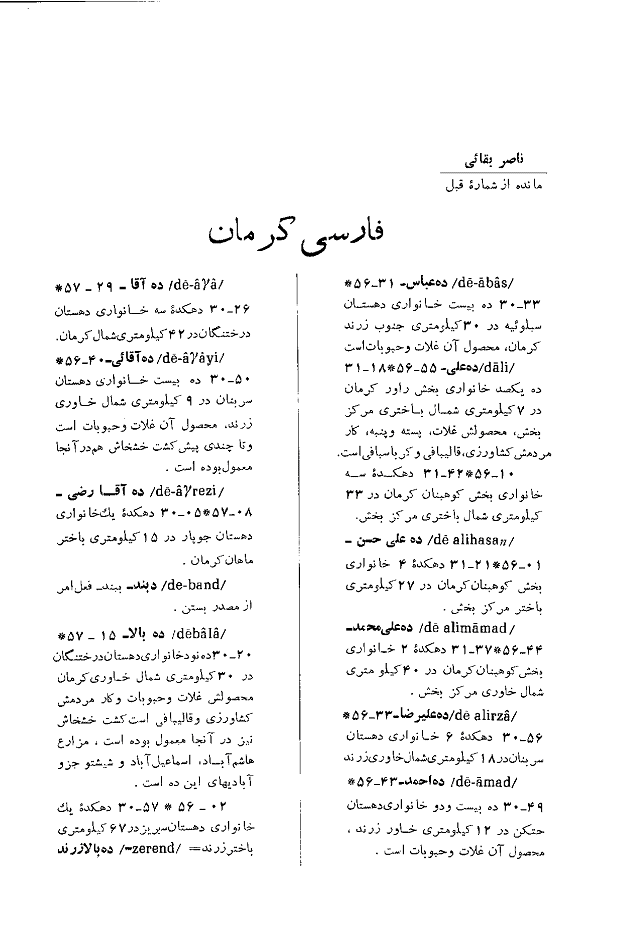 ناصر بقائی
مانده از شمارهٔ قبل
فارسی کرمان
/dē-ābâs/ ده‌عباس- ۳۱-۵۶*
۳۳-۳۰ ده بیست خانواری دهستان
سیلوئیه در ۳۰ کیلومتری جنوب زرند
کرمان، محصول آن غلات وحبوبات‌است
/dāli/ ده‌علی- ۵۵-۵۶*۱۸-۳۱
ده یکصد خانواری بخش راور کرمان
در ۷ کیلومتری شمال باختری مرکز
بخش، محصولش غلات، پسته وپنبه، کار
مردمش کشاورزی، قالیبافی و کرباسبافی‌است.
۱۰-۵۶*۴۲-۳۱ دهکدهٔ سه
خانواری بخش کوهبنان کرمان در ۳۳
کیلومتری شمال باختری مرکز بخش.
/dē alihasan/ ده علی حسن -
۰۱-۵۶*۲۱-۳۱ دهکدهٔ ۴ خانواری
بخش کوهبنان‌کرمان در ۲۷ کیلومتری
باختر مرکز بخش .
/dē alimāmad/ ده‌علی‌محمد-
۴۴-۵۶*۳۷-۳۱ دهکدهٔ ۲ خانواری
بخش‌کوهبنان کرمان در ۴۰ کیلو متری
شمال خاوری مرکز بخش .
/dē alirzâ/ ده‌علیرضا-۳۳-۵۶*
۵۶-۳۰ دهکدهٔ ۶ خانواری دهستان
سربنان‌در ۱۸ کیلومتری‌شمال‌خاوری‌زرند
/dē-āmad/ ده‌احمد-۴۳-۵۶*
۴۹-۳۰ ده بیست ودو خانواری‌دهستان
حتکن در ۱۲ کیلومتری خاور زرند ،
محصول آن غلات وحبوبات است .
/dē-âγâ/ ده آقا - ۲۹ - ۵۷*
۲۶-۳۰ دهکدهٔ سه خانواری دهستان
درختنگان‌در ۴۲ کیلومتری‌شمال‌کرمان.
/dē-âγâyi/ ده‌آقائی-۴۰-۵۶*
۵۰-۳۰ ده بیست خانواری دهستان
سربنان در ۹ کیلومتری شمال خاوری
زرند، محصول آن غلات وحبوبات است
وتا چندی پیش‌کشت خشخاش هم‌درآنجا
معمول‌بوده است .
/dē-âγrezi/ ده آقا رضی -
۰۸-۵۷*۰۵-۳۰ دهکدهٔ یك‌خانواری
دهستان جوپار در ۱۵ کیلومتری باختر
ماهان‌کرمان .
/de-band/ دبند- ببند- فعل‌امر
از مصدر بستن .
/dēbâlâ/ ده بالا- ۱۵ - ۵۷*
۲۰-۳۰ده‌نودخانواری‌دهستان‌درختنگان
در ۳۰ کیلومتری شمال خاوری‌کرمان
محصولش غلات وحبوبات وکار مردمش
کشاورزی وقالیبافی است‌کشت خشخاش
نیز در آنجا معمول بوده است ، مزارع
هاشم‌آباد، اسماعیل‌آباد و شیشتو جزو
آبادیهای این ده است .
۰۲ - ۵۶ * ۵۷-۳۰ دهکدهٔ یك
خانواری دهستان‌سریزدر۶۷ کیلومتری
باخترزرند= /-zerend/ ده‌بالازرند